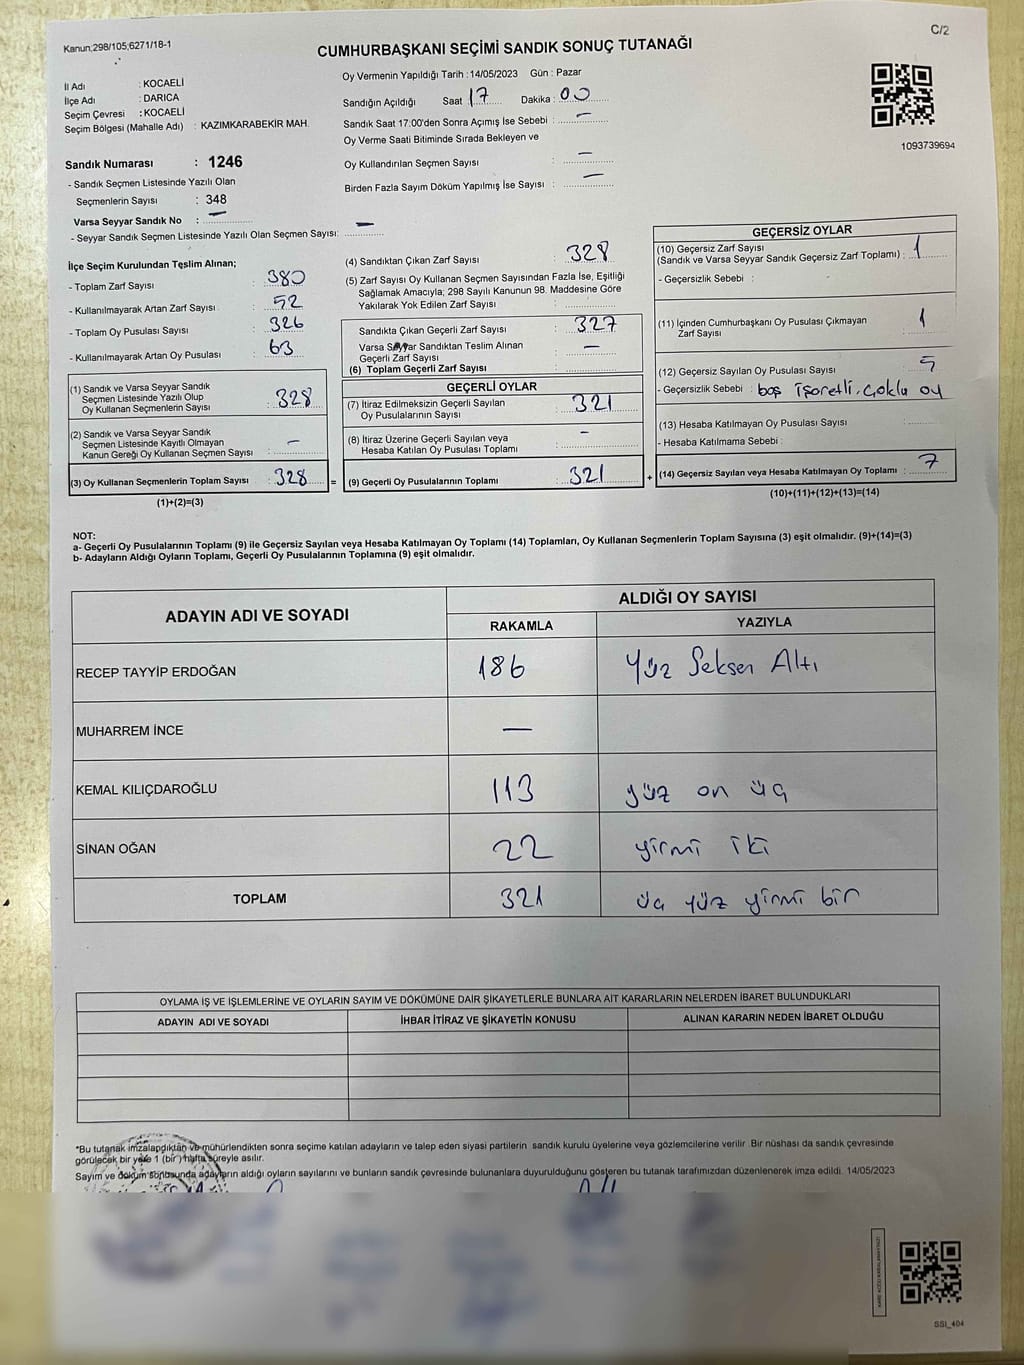 Kanun;298/105;6271/18-1
C/2
CUMHURBAŞKANI SEÇİMİ SANDIK SONUÇ TUTANAĞI
İl Adı : KOCAELİ
İlçe Adı : DARICA
Seçim Çevresi : KOCAELİ
Seçim Bölgesi (Mahalle Adı) : KAZIMKARABEKİR MAH.
Sandık Numarası : 1246
- Sandık Seçmen Listesinde Yazılı Olan
Seçmenlerin Sayısı : 348
Varsa Seyyar Sandık No : —
- Seyyar Sandık Seçmen Listesinde Yazılı Olan Seçmen Sayısı: —
Oy Vermenin Yapıldığı Tarih : 14/05/2023 Gün : Pazar
Sandığın Açıldığı Saat 17 Dakika : 00
Sandık Saat 17:00'den Sonra Açımış İse Sebebi : —
Oy Verme Saati Bitiminde Sırada Bekleyen ve
Oy Kullandırılan Seçmen Sayısı : —
Birden Fazla Sayım Döküm Yapılmış İse Sayısı : —
1093739694
İlçe Seçim Kurulundan Teslim Alınan;
- Toplam Zarf Sayısı : 380
- Kullanılmayarak Artan Zarf Sayısı : 52
- Toplam Oy Pusulası Sayısı : 326
- Kullanılmayarak Artan Oy Pusulası : 63
(1) Sandık ve Varsa Seyyar Sandık
Seçmen Listesinde Yazılı Olup
Oy Kullanan Seçmenlerin Sayısı : 328
(2) Sandık ve Varsa Seyyar Sandık
Seçmen Listesinde Kayıtlı Olmayan
Kanun Gereği Oy Kullanan Seçmen Sayısı : —
(3) Oy Kullanan Seçmenlerin Toplam Sayısı : 328 =
(1)+(2)=(3)
(4) Sandıktan Çıkan Zarf Sayısı : 328
(5) Zarf Sayısı Oy Kullanan Seçmen Sayısından Fazla İse, Eşitliği
Sağlamak Amacıyla; 298 Sayılı Kanunun 98. Maddesine Göre
Yakılarak Yok Edilen Zarf Sayısı :
Sandıkta Çıkan Geçerli Zarf Sayısı : 327
Varsa Seyyar Sandıktan Teslim Alınan
Geçerli Zarf Sayısı : —
(6) Toplam Geçerli Zarf Sayısı :
GEÇERLİ OYLAR
(7) İtiraz Edilmeksizin Geçerli Sayılan
Oy Pusulalarının Sayısı : 321
(8) İtiraz Üzerine Geçerli Sayılan veya
Hesaba Katılan Oy Pusulası Toplamı : —
(9) Geçerli Oy Pusulalarının Toplamı : 321 +
GEÇERSİZ OYLAR
(10) Geçersiz Zarf Sayısı
(Sandık ve Varsa Seyyar Sandık Geçersiz Zarf Toplamı) : 1
- Geçersizlik Sebebi :
(11) İçinden Cumhurbaşkanı Oy Pusulası Çıkmayan
Zarf Sayısı : 1
(12) Geçersiz Sayılan Oy Pusulası Sayısı : 5
- Geçersizlik Sebebi : boş işaretli, çoklu oy
(13) Hesaba Katılmayan Oy Pusulası Sayısı :
- Hesaba Katılmama Sebebi :
(14) Geçersiz Sayılan veya Hesaba Katılmayan Oy Toplamı : 7
(10)+(11)+(12)+(13)=(14)
NOT:
a- Geçerli Oy Pusulalarının Toplamı (9) ile Geçersiz Sayılan veya Hesaba Katılmayan Oy Toplamı (14) Toplamları, Oy Kullanan Seçmenlerin Toplam Sayısına (3) eşit olmalıdır. (9)+(14)=(3)
b- Adayların Aldığı Oyların Toplamı, Geçerli Oy Pusulalarının Toplamına (9) eşit olmalıdır.
ADAYIN ADI VE SOYADI
ALDIĞI OY SAYISI
RAKAMLA YAZIYLA
RECEP TAYYİP ERDOĞAN 186 Yüz Seksen Altı
MUHARREM İNCE —
KEMAL KILIÇDAROĞLU 113 yüz on üç
SİNAN OĞAN 22 yirmi iki
TOPLAM 321 üç yüz yirmi bir
OYLAMA İŞ VE İŞLEMLERİNE VE OYLARIN SAYIM VE DÖKÜMÜNE DAİR ŞİKAYETLERLE BUNLARA AİT KARARLARIN NELERDEN İBARET BULUNDUKLARI
ADAYIN ADI VE SOYADI İHBAR İTİRAZ VE ŞİKAYETİN KONUSU ALINAN KARARIN NEDEN İBARET OLDUĞU
*Bu tutanak imzalapdıktan ve mühürlendikten sonra seçime katılan adayların ve talep eden siyasi partilerin sandık kurulu üyelerine veya gözlemcilerine verilir. Bir nüshası da sandık çevresinde
görülecek bir yere 1 (bir ) hafta süreyle asılır.
Sayım ve döküm sonucunda adayların aldığı oyların sayılarını ve bunların sandık çevresinde bulunanlara duyurulduğunu gösteren bu tutanak tarafımızdan düzenlenerek imza edildi. 14/05/2023
SSI_404